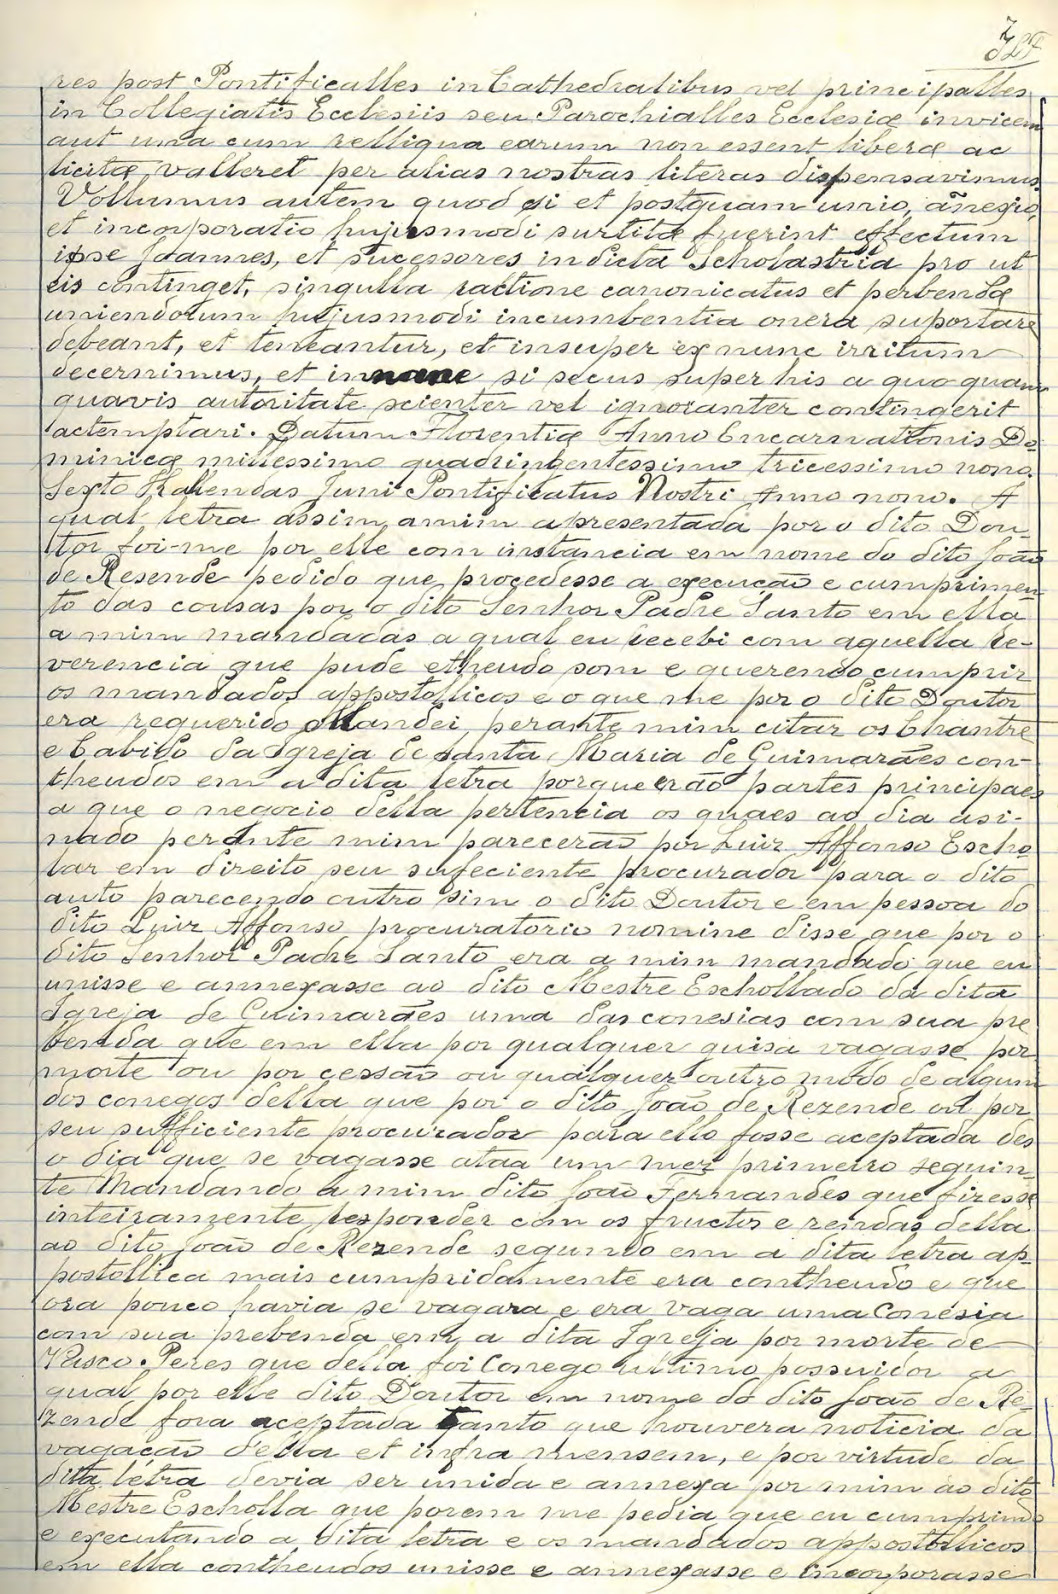 res post Pontificalles in Cathedralibus vel principalles
in Collegiatis Ecclesiis seu Parochialles Ecclesiæ invicem
aut una cum relliqua earum non essent liberæ ac
licitæ, valleret per alias nostras literas dispensavimus.
Vollumus autem quod si et postquam unio, añexio,
et incorporatio hujusmodi surtitæ fuerint effectum
ipse Joannes, et sucessores in dicta Scholastria pro ut
eis continget, singulla ractione canonicatus et perbendæ
uniendorum hujusmodi incumbentia onera suportare
debeant, et teneantur, et insuper ex nunc irritum
decernimus, et innane si secus super his a quo quam
quavis autoritate scienter vel ignoranter contingerit
actemptari. Datum Florentiæ Anno Encarnationis Do-
minicæ millessimo quadringentessimo tricessimo nono.
Sexto Kalendas Juni Pontificatus Nostri Anno nono. A
qual letra assim amim apresentada por o dito Dou-
tor foi-me por elle com instancia em nome do dito João
de Resende pedido que procedesse a execução e cumprimen-
to das cousas por o dito Senhor Padre Santo em ella
a mim mandadas a qual eu recebi com aquella re-
verencia que pude etheudo som e querendo cumprir
os mandados appostollicos e o que me por o dito Doutor
era requerido Mandei, perante mim citar os Chantre
e Cabido da Igreja de Santa Maria de Guimarães con-
theudos em a dita letra porque erão partes principaes
a que o negocio della pertencia os quaes ao dia asi-
nado perante mim parecerão por Luiz Affonso Escho-
lar em direito seu sufeciente procurador para o dito
auto parecendo outro sim o dito Doutor e em pessoa do
dito Luiz Affonso procuratorio nomine disse que por o
dito Senhor Padre Santo era a mim mandado que eu
unisse e annexasse ao dito Mestre Eschollado da dita
Igreja de Guimarães uma das conesias com sua pre
benda que em ella por qualquer guisa vagasse por
morte ou por cessão ou qualquer outro modo de algum
dos conegos della que por o dito João de Rezende ou por
seu sufficiente procurador para ello fosse aceptada des
o dia que se vagasse ataa um mez primeiro seguin-
te Mandando a mim dito João Fernandes que fizesse
inteiramente responder com os fructos e rendas della
ao dito João de Rezende segundo em a dita letra ap-
postollica mais cumpridamente era contheudo e que
ora pouco havia se vagara e era vaga uma Conesia
com sua prebenda em a dita Igreja por morte de
Vasco Peres que della foi Conego ultimo possuidor a
qual por elle dito Doutor em nome do dito João de Re-
zende fora aceptada tanto que houvera noticia da
vagação della et infra mensem, e por virtude da
dita letra devia ser unida e annexa por mim ao dito
Mestre Escholla que porem me pedia que eu cumprindo
e executando a dita letra e os mandados appostollicos
em ella contheudos unisse e annexasse e incorporasse